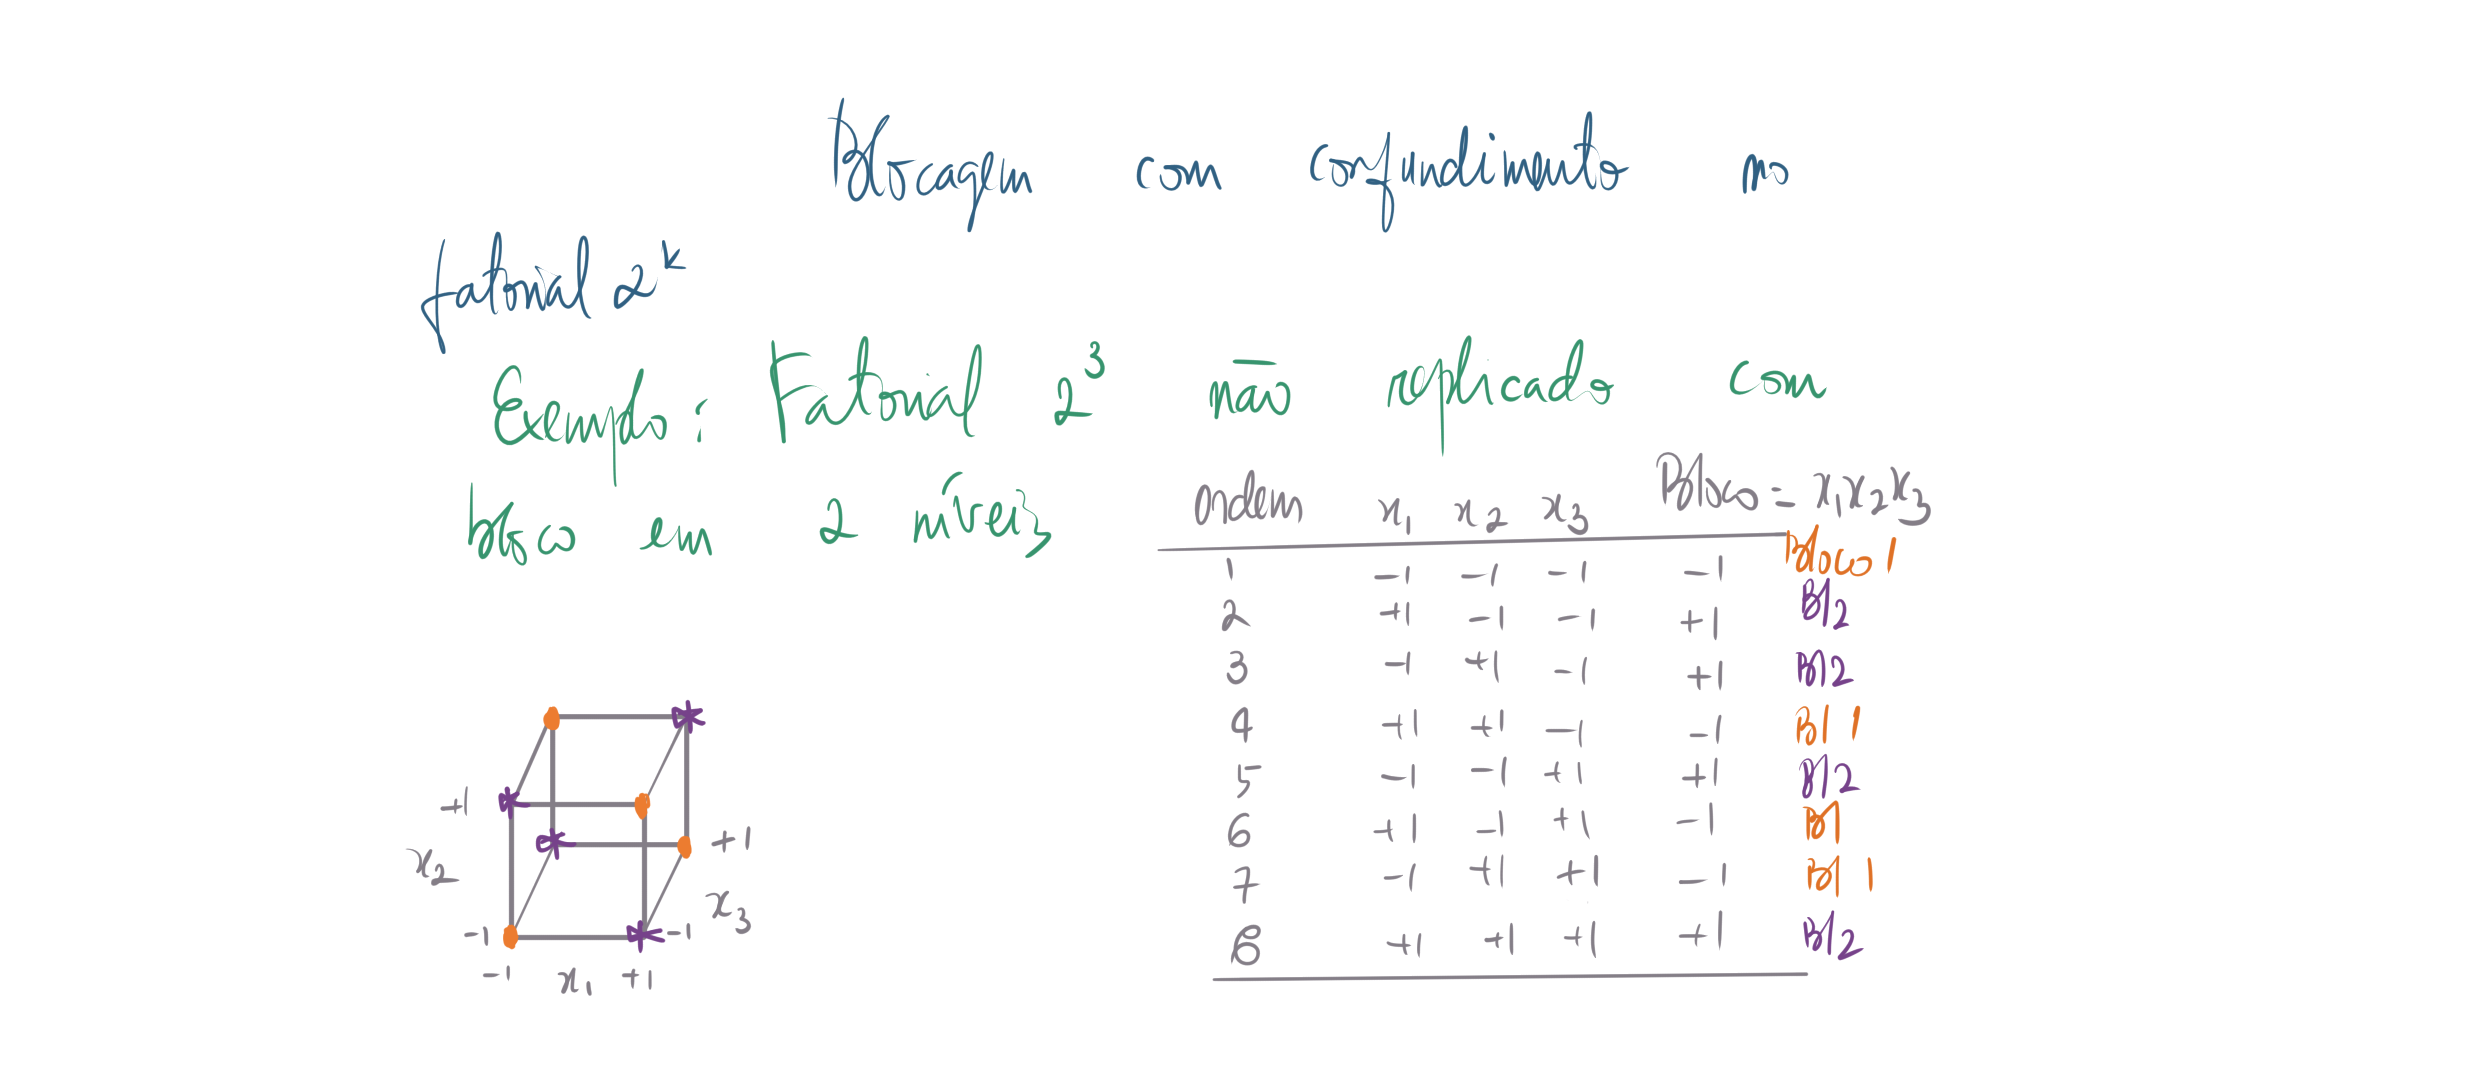 Blocagem com confundimento no
fatorial 2^k
Exemplo: Fatorial 2^3 não replicado com
bloco em 2 níveis
ordem x1 x2 x3 Bloco = x1x2x3
1 -1 -1 -1 -1 Bloco 1
2 +1 -1 -1 +1 Bl2
3 -1 +1 -1 +1 Bl2
4 +1 +1 -1 -1 Bl 1
5 -1 -1 +1 +1 Bl2
6 +1 -1 +1 -1 Bl
7 -1 +1 +1 -1 Bl 1
8 +1 +1 +1 +1 Bl2
+1
x2
+1
x3
-1
-1
-1 x1 +1